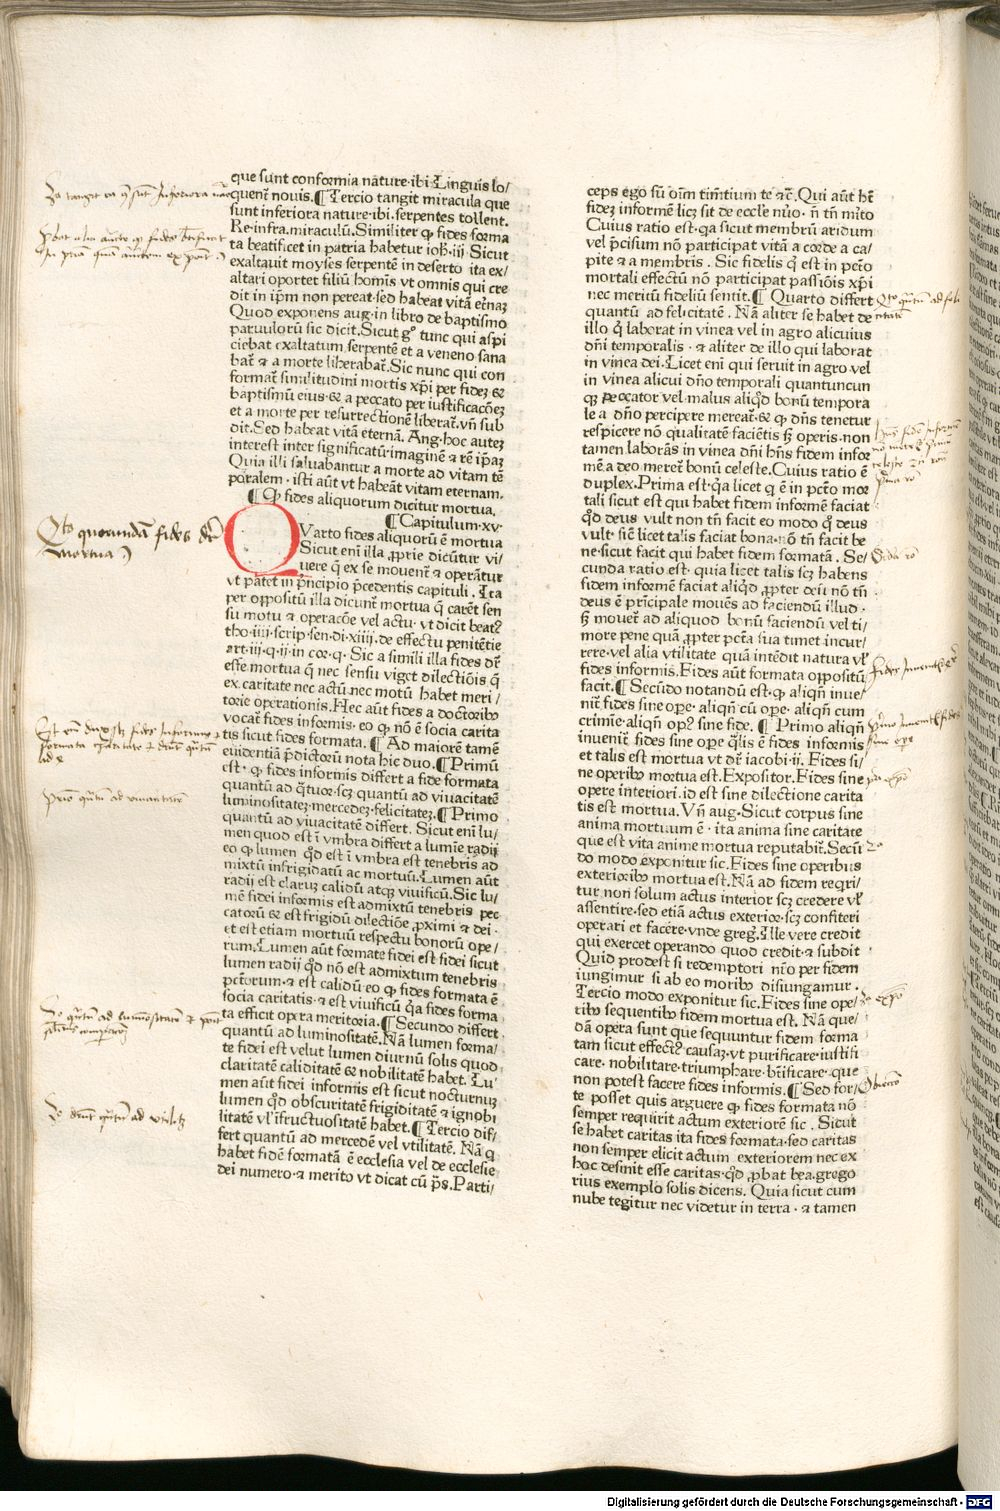 que sunt conformia nature·ibi Linguis lo/
quent᷑ nouis.¶ Tercio tangit miracula que
sunt inferiora nature·ibi.serpentes tollent.
Re·infra.miraculū.Similiter ꝙ fides forma
ta beatificet in patria habetur ioħ·iij Sicut
exaltauit moyses serpentē in deserto ita ex/
altari oportet filiū homīs vt omnis qui cre
dit in ip̄m non pereat·sed habeat vitā et̄naʒ
Quod exponens aug·in libro de baptismo
paruulorū sic dicit.Sicut gͦ tunc qui aspi
ciebat exaltatum serpentē et a veneno sana
bat᷑ ⁊ a morte liberabat᷑.Sic nunc qui con
format᷑ similitudini mortis xp̄i per fideʒ &
baptismū eius·& a peccato per iustificacōeʒ
et a morte per resurrectionē liberat᷑.vn̄ sub
dit.Sed habeat vitā eternā. Ang·hoc auteʒ
interest inter significatū·imaginē & rē ip̄aʒ
Quia illi saluabantur a morte ad vitam tē
poralem·isti aūt vt habeāt vitam eternam.
¶ ꝙ fides aliquorum dicitur mortua.
¶ Capitulum·xv·
QVarto fides aliquorū ē mortua
Sicut enī illa ꝓprie dicūtur vi/
uere q̄ ex se mouent᷑ & operātur
vt patet in p̄ncipio p̄cedentis capituli. Ita
per oppositū illa dicunt᷑ mortua q̄ carēt sen
su motu & operacōe vel actu·vt dicit beat⁹
tho·iiij·scrip·sen·di·xiiij·de effectu penitētie
art·iij·q·ij·in cor·q·Sic a simili illa fides dr̄
esse mortua q̄ nec sensu viget dilectiōis q̄
ex caritate nec actū nec motū habet meri/
torie operationis.Hec aūt fides a doctoribꝰ
vocat᷑ fides informis·eo ꝙ nō ē socia carita
tis sicut fides formata.¶ Ad maiorē tamē
euidentiā p̄dictorū nota hic duo.¶ Primū
est·ꝙ fides informis differt a fide formata
quantū ad q̄tuor·scʒ quantū ad viuacitatē
luminositateʒ·mercedeʒ·felicitateʒ.¶ Primo
quantū ad viuacitatē differt. Sicut enī lu/
men quod est ī vmbra differt a lumīe radij
eo ꝙ lumen q̄d est ī vmbra est tenebris ad
mixtū infrigidatū ac mortuū.Lumen aūt
radij est claruʒ calidū atqʒ viuificū.Sic lu/
mē fidei informis est admixtū tenebris pec
catorū & est frigidū dilectiōe ꝓximi & dei·
et est etiam mortuū respectu bonorū ope/
rum.Lumen aūt formate fidei est sicut
lumen radij q̄d nō est admixtum tenebris
pctōrum·⁊ est calidū eo ꝙ fides formata ē
socia caritatis·⁊ est viuificū q̄a fides forma
ta efficit opera meritoria.¶ Secundo differt
quantū ad luminositatē.Nā lumen forma/
te fidei est velut lumen diurnū solis quod
claritatē caliditatē & nobilitatē habet. Lu/
men aūt fidei informis est sicut nocturnuʒ
lumen q̄d obscuritatē frigiditatē & ignobi
litatē vl̓ ifructuositatē habet.¶ Tercio dif/
fert quantū ad mercedē vel vtilitatē. Nā q̄
habet fidē formatā ē ecclesia vel de ecclesie
dei numero·⁊ merito vt dicat cū p̄s.Parti/
ceps ego sū oīm timētium te ⁊c̄.Qui aūt hꝫ
fideʒ informē licʒ sit de eccl̄e nūo·n̄ tn̄ mīto
Cuius ratio est·qa sicut membrū aridum
vel p̄cisum nō participat vitā a corde a ca/
pite ⁊ a membris. Sic fidelis q̄ est in pctō
mortali effectū nō participat passiōis xp̄i
nec meritū fideliū sentit.¶ Quarto differt
quantū ad felicitatē. Nā aliter se habet de
illo q̄ laborat in vinea vel in agro alicuius
dn̄i temporalis·⁊ aliter de illo qui laborat
in vinea dei.Licet enī qui seruit in agro vel
in vinea alicui dn̄o temporali quantuncun
qʒ peccator vel malus aliq̄d bonū tempora
le a dn̄o percipere mereat᷑·& ꝙ dn̄s tenetur
respicere nō qualitatē faciētis sʒ operis·non
tamen laborās in vinea dn̄i hn̄s fidem infor
mē a deo meret᷑ bonū celeste.Cuius ratio ē
duplex.Prima est·q̄a licet q ē in pctō mor
tali sicut est qui habet fidem informē faciat
q̄d deus vult non tn̄ facit eo modo q̄ deus
vult·sic̄ licet talis faciat bona·nō tn̄ facit be
ne·sicut facit qui habet fidem formatā. Se/
cunda ratio est·quia licet talis scʒ habens
fidem informē faciat aliq̄d ꝓpter deū nō tn̄
deus ē prīcipale mouēs ad faciendū illud·
sʒ mouet᷑ ad aliquod bonū faciendū vel ti/
more pene quā ꝓpter pctā sua timet incur/
rere·vel alia vtilitate quā intēdit natura vl̓
fides informis.Fides aūt formata oppositū
facit.¶ Secūdo notandū est·ꝙ aliqn̄ inue/
nit᷑ fides sine ope·aliqn̄ cū ope·aliqn̄ cum
crimīe·aliqn̄ op⁹ sine fide.¶ Primo aliqn̄
inuenit᷑ fides sine ope q̄lis ē fides informis
et talis est mortua vt dr̄ iacobi·ij. Fides si/
ne operibꝰ mortua est.Expositor.Fides sine
opere interiori·id est sine dilectione carita
tis est mortua. Vn̄ aug·Sicut corpus sine
anima mortuum ē·ita anima sine caritate
que est vita anime mortua reputabit᷑.Secū
do modo exponitur sic.Fides sine operibus
exterioribꝰ mortua est.Nā ad fidem reqri/
tur non solum actus interior scʒ credere vl̓
assentire·sed etiā actus exterior·scʒ confiteri
operari et facere·vnde greg⁹.Ille vere credit
qui exercet operando quod credit·& subdit
Quid prodest si redemptori nr̄o per fidem
iungimur si ab eo moribꝰ disiungamur.
Tercio modo exponitur sic.Fides sine ope/
ribꝰ sequentibꝰ fidem mortua est. Nā que/
dā opera sunt que sequuntur fidem forma
tam sicut effect⁹ causaʒ·vt purificare·iustifi
care·nobilitare·triumphare·bt̄ificare·que
non potest facere fides informis.¶ Sed for/
te posset quis arguere ꝙ fides formata nō
semper requirit actum exteriorē sic. Sicut
se habet caritas ita fides formata·sed caritas
non semper elicit actum exteriorem nec ex
hoc desinit esse caritas·q̄d ꝓbat bea.grego
rius exemplo solis dicens. Quia sicut cum
nube tegitur nec videtur in terra·⁊ tamen
Digitalisierung gefördert durch die Deutsche Forschungsgemeinschaft - DFG